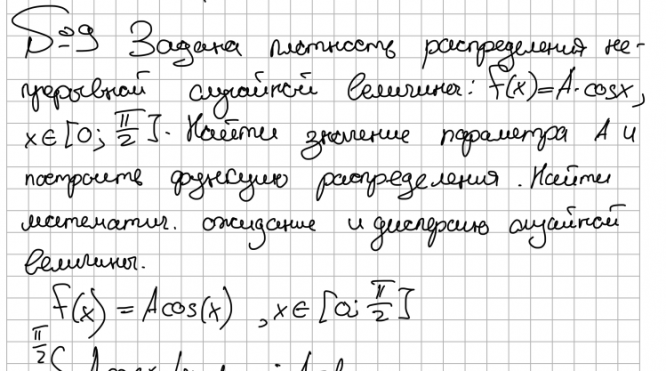 №9 Задана плотность распределения не-
прерывной случайной величины: f(x)=A·cosx,
x∈[0; π/2]. Найти значение параметра A и
построить функцию распределения. Найти
математич. ожидание и дисперсию случайной
величины.
f(x) = A cos(x) , x∈[0; π/2]
π/2